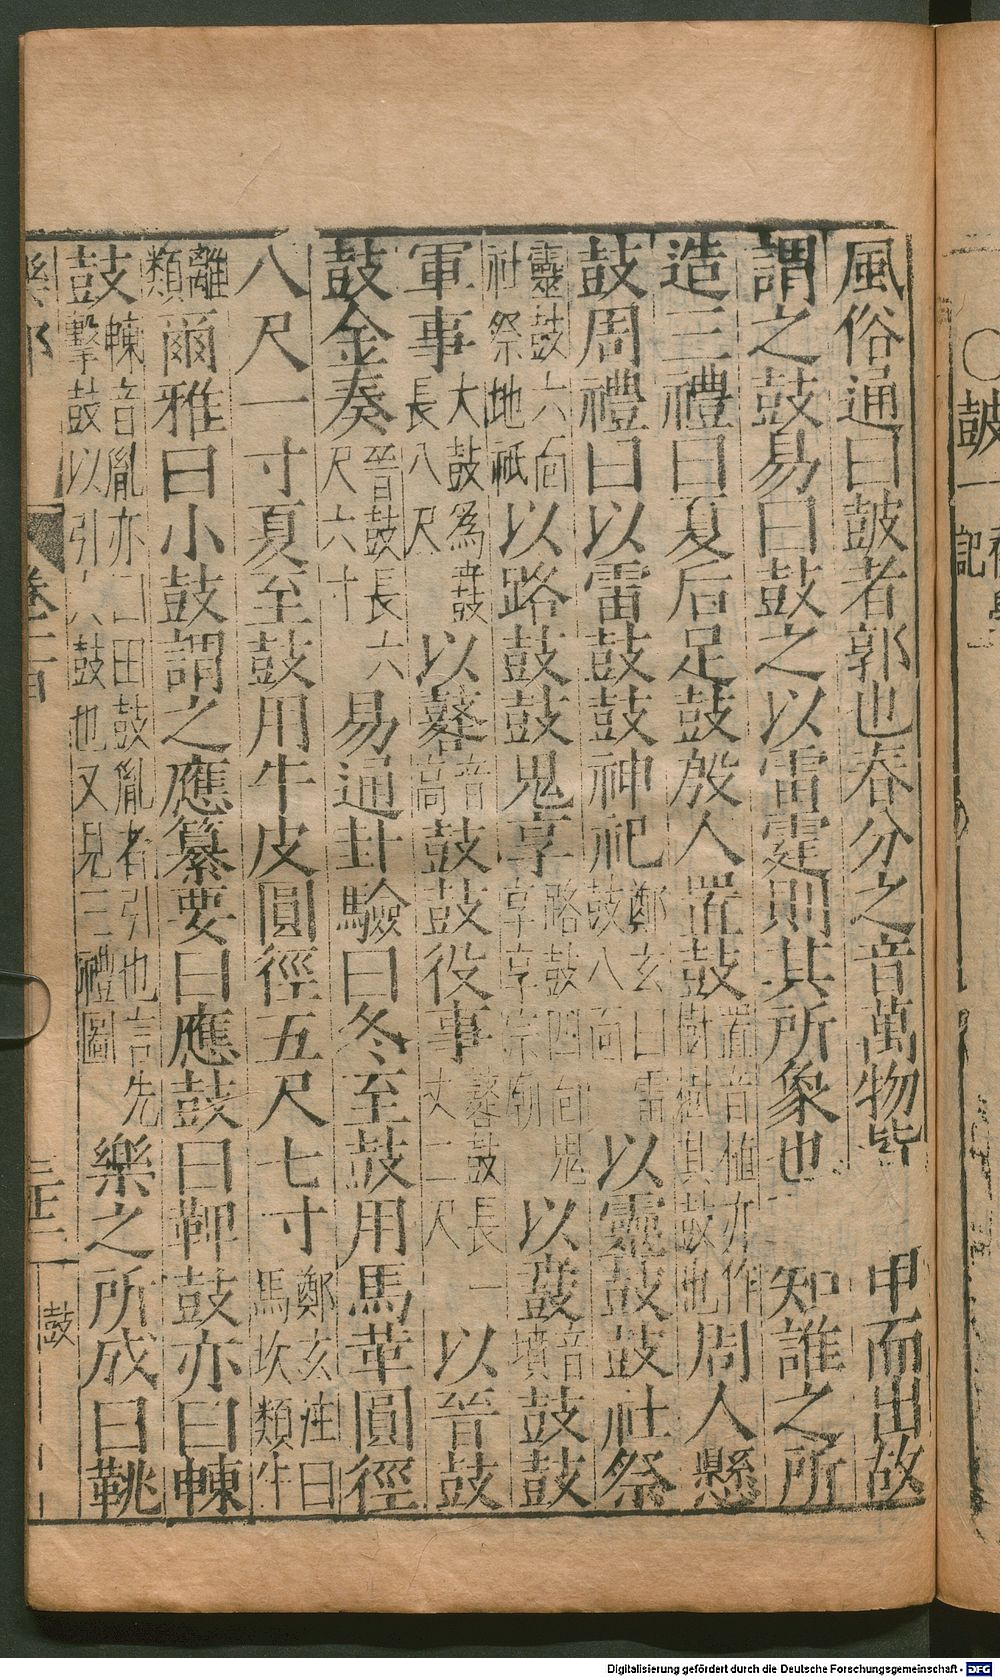 風俗通曰鼓者郭也春分之音萬物皆 甲而出故
謂之鼓易曰鼓之以雷霆則其所象也 知誰之所
造三禮曰夏后足鼓殷人置鼓置音植亦作樹樹其鼓也周人懸
鼓周禮曰以雷鼓鼓神祀鄭玄曰雷鼓八面以靈鼓鼓社祭
靈鼓六面社祭地祇以路鼓鼓鬼享路鼓四面鬼享享宗廟以鼖音墳鼓鼓
軍事大鼓為鼖長八尺以鼛音高鼓鼓役事鼛鼓長一丈二尺以晉鼓
鼓金奏晉鼓長六尺六寸易通卦驗曰冬至鼓用馬革圓徑
八尺一寸夏至鼓用牛皮圓徑五尺七寸鄭玄注曰馬坎類牛
離類爾雅曰小鼓謂之應纂要曰應鼓曰鞞鼓亦曰朄
鼓朄音胤亦曰田鼓胤者引也言先擊鼓以引大鼓也又見三禮圖樂之所成曰鞉
鼓
○鼓一
Digitalisierung gefördert durch die Deutsche Forschungsgemeinschaft - DFG